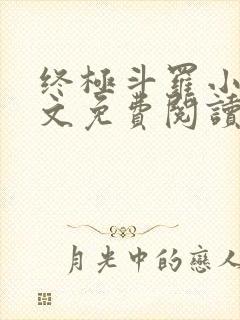 终極斗羅小
文免費閱讀
月光中的戀人